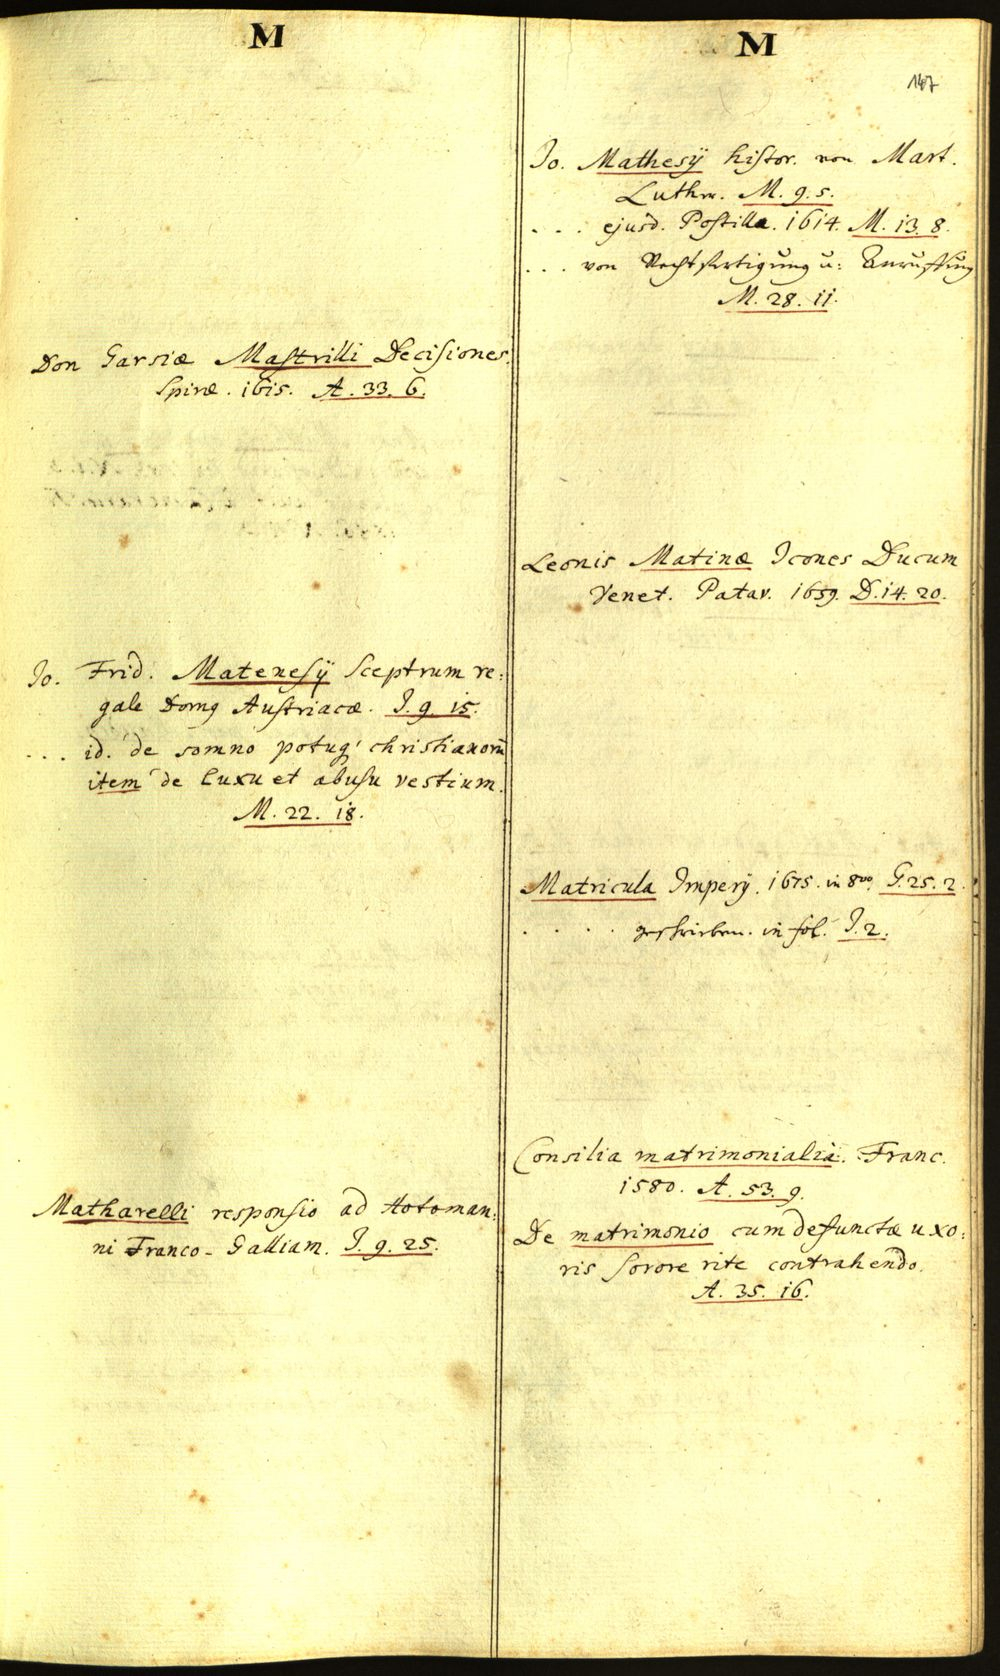 M
Don Garsiæ Mastrilli Decisiones
Spiræ. 1615. A. 33. 6.
Jo. Frid. Matenesij Sceptrum re:
gale Domq Austriacæ. J. 9. 15.
... id. de somno potuq' christianorū
item de luxu et abusu vestium.
M. 22. 18.
Matharelli responsio ad Hotoman:
ni Franco-Galliam. J. 9. 25.
M
147
Jo. Mathesij histor. von Mart.
Luthro. M. 9. 5.
... ejusd. Postilla. 1614. M. 13. 8.
... von Rechtfertigung u: Anruffung
M. 28. 11.
Leonis Matinæ Icones Ducum
Venet. Patav. 1659. D. 14. 20.
Matricula Imperij. 1675. in 8vo. G. 25. 2.
.... geschrieben. in fol. J. 2.
Consilia matrimonialia. Franc.
1580. A. 53. 9.
De matrimonio cum defunctæ uxo:
ris sorore rite contrahendo.
A. 35. 16.